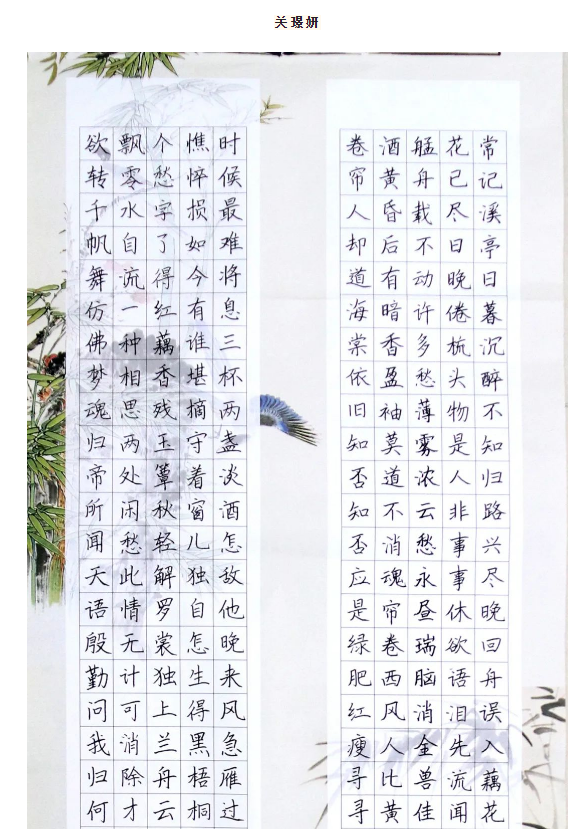 关璟妍
常记溪亭日暮沉醉不知归路兴尽晚回舟误入藕花
花已尽日晚倦梳头物是人非事事休欲语泪先流闻
艋舟载不动许多愁薄雾浓云愁永昼瑞脑消金兽佳
酒黄昏后有暗香盈袖莫道不消魂帘卷西风人比黄
卷帘人却道海棠依旧知否知否应是绿肥红瘦寻寻
时候最难将息三杯两盏淡酒怎敌他晚来风急雁过
憔悴损如今有谁堪摘守着窗儿独自怎生得黑梧桐
个愁字了得红藕香残玉簟秋轻解罗裳独上兰舟云
飘零水自流一种相思两处闲愁此情无计可消除才
欲转千帆舞仿佛梦魂归帝所闻天语殷勤问我归何